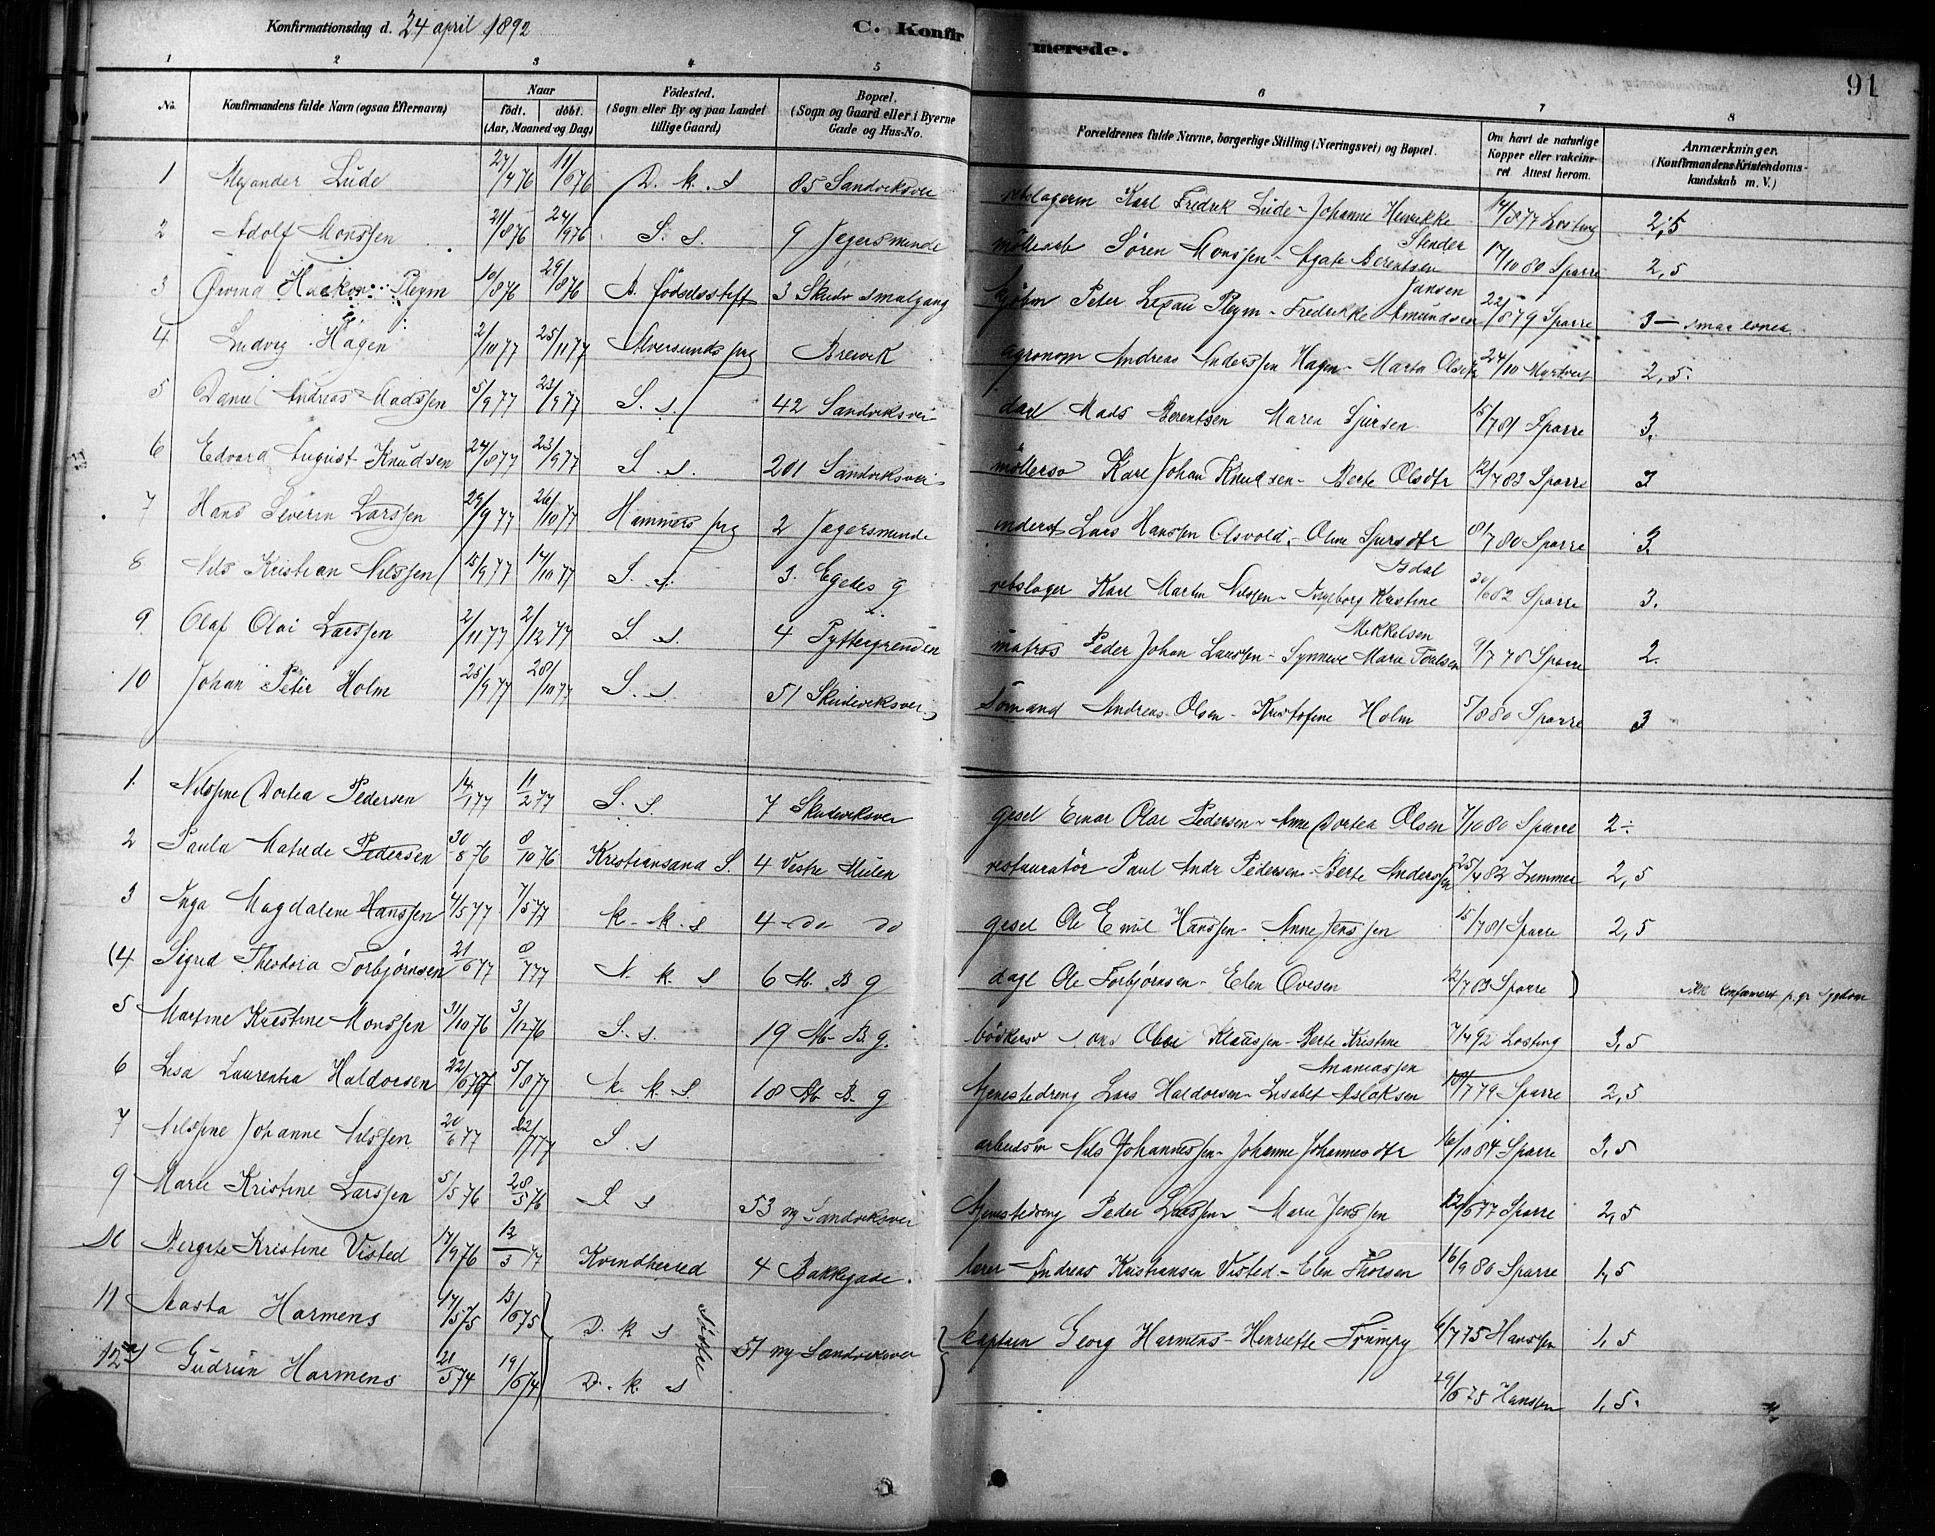 Konfirmationsdag d. 24 april 1892
C. Konfirmerede.
91
1 2 3 4 5 6 7 8
No. Konfirmandens fulde Navn (ogsaa Efternavn) Naar födt. döbt. (Aar, Maaned og Dag) Födested. (Sogn eller By og paa Landet tillige Gaard) Bopæl. (Sogn og Gaard eller i Byerne Gade og Hus-No. Forældrenes fulde Navne, borgerlige Stilling (Næringsvei) og Bopæl. Om havt de naturlige Kopper eller vakcineret. Attest herom. Anmærkninger. (Konfirmandens Kristendomskundskab m. V.)
1 Lüde 27/4 76 11/6 76 D. k. s 85 Sandviksvei Karl Fredrik Lüde - Johanne Henrikke Stender 14/8 77 Losting 2,5
2 Adolf Monssen 21/8 76 24/9 76 S. s. 9 Jegersminde Søren Monssen - Agate Berentsen 17/10 80 Sparre 2,5
3 Øivind Haakon Pleym 10/8 76 29/8 76 A. födselsstift 3 Skudv smalgang kjøbm Peter Lexau Pleym - Fredrikke Amundsen Jansen 22/8 79 Sparre 3 -
4 Ludvig Hagen 2/10 77 25/11 77 Alversunds prg Brevik agronom Andreas Anderssen Hagen - Marta Olsdtr 24/10 2,5.
5 Daniel Andreas Madssen 5/9 77 23/9 77 S. s. 42 Sandviksvei Mads Berentsen Maren Sjursen 15/7 81 Sparre 3.
6 Edvard August Knudsen 24/8 77 23/9 77 S. s. 201 Sandviksvei møllersv Karl Johan Knudsen - Berte Olsdtr 12/7 83 Sparre 3
7 Hans Severin Larssen 29/9 77 26/10 77 Hammers prg 2 Jegersminde inderst Lars Hanssen Asvold - Oline Sjursdtr 8/7 80 Sparre 3.
8 Nils Kristian Nilssen 15/9 77 14/10 77 S. s. 3. Egedes g rebslager Karl Martin Nilssen - Ingeborg Kristine Isdal 30/6 82 Sparre 3.
9. Olaf Olai Larssen 2/11 77 2/12 77 S. s. 4 Pyttergrenden matros Peder Johan Larssen - Synneve Marie Poulsen Mikkelsen 9/7 78 Sparre 2.
10 Johan Peter Holm 25/9 77 28/10 77 S. s. 51 Skudeviksvei Sömand Andreas Olsen - Kristofine Holm 5/8 80 Sparre 3
1. Nilssine Dortea Pedersen 14/1 77 11/2 77 S. S. 7 Skudeviksvei gesel Einar Olai Pedersen - Anne Dortea Olsen 7/10 80 Sparre 2 ÷
2 Paula Matilde Pedersen 30/8 76 8/10 76 Kristiansand S. 4 Vestre Mulen restauratør Paul Andr Pedersen - Berte Anderssen 25/4 82 Zimmer 2,5
3 Inga Magdalene Hanssen 4/5 77 7/5 77 k. k. s 4 do do gesel Ole Emil Hanssen - Anne Jenssen 15/7 81 Sparre 2,5
(4 Sigrid Theodora Torbjørnsen 21/6 77 8/7 77 N. k. s 6 M. B g dagl Ole Torbjørnsen - Elen Ovesen 12/7 83 Sparre ) ikke konfirmert p. gr sygdom
5 Martine Kristine Monssen 31/10 76 3/12 76 S. s. 19 M. B. g. bödkersv Mons Olai Klaussen - Berte Kristine Ananiassen 7/4 92 Losting 3,5
6 Lisa Laurentia Haldorsen 22/6 77 5/8 77 k k S. 18 M B. g tjenestedreng Lars Haldorsen - Lisabet Aslaksen 18/7 79 Sparre 2,5
7 Nilssine Johanne Nilssen 20/6 77 22/7 77 S. s arbeidsm Nils Johannessen - Johanne Johannesdtr 16/10 84 Sparre 3,5
9 Marie Kristine Larssen 5/5 76 28/5 76 S s 53 ny Sandviksvei tjenestedreng Peder Larssen Marie Jenssen 12/6 77 Sparre 2,5
10 Bergite Kristine Visted 17/9 76 12/3 77 Kvindherred 4 Bakkegade. lærer - Andreas Kristiansen Visted - Elen Thorsen 16/9 80 Sparre 1,5
11 Aasta Harmens 17/5 75 13/6 75 D. k s Søstre 51 ny Sandviksvei kaptein Georg Harmens - Henriette Trumpy 6/7 75 Hanssen 1,5
12 Gudrun Harmens 21/5 74 19/6 74 D. k. s 29/6 75 Hanssen 1,5.